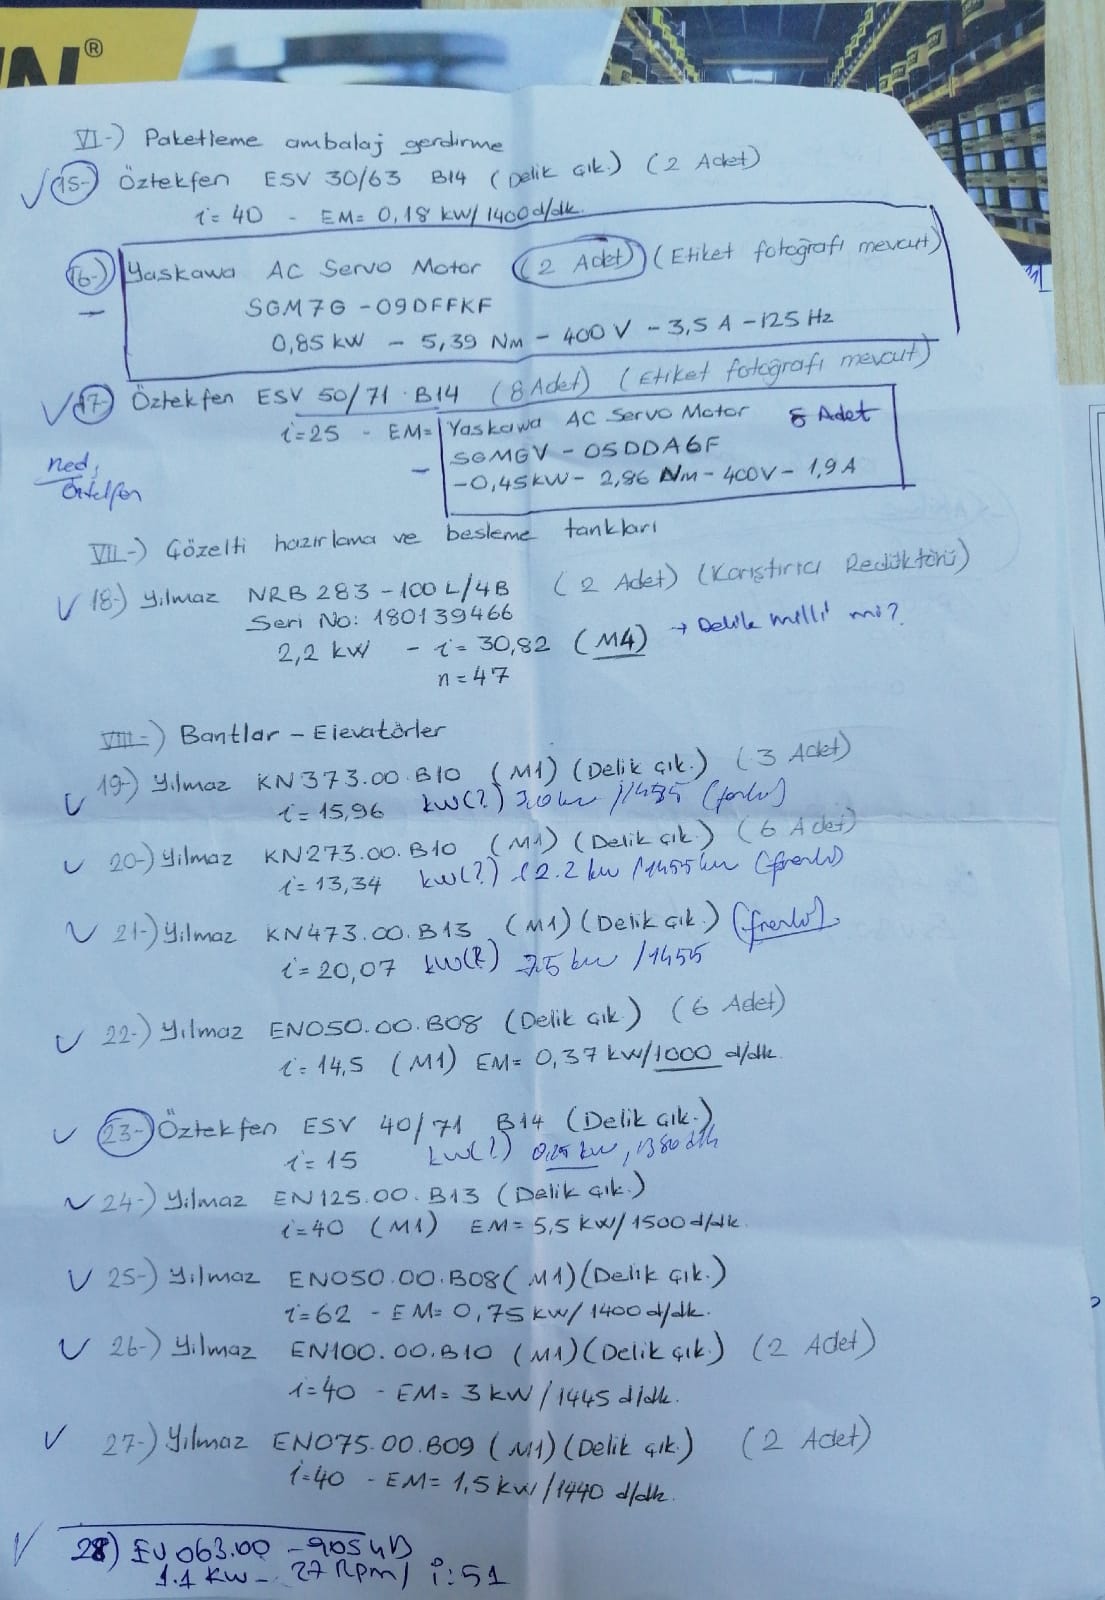 N®
VI-) Paketleme ambalaj gerdirme
15-) Öztekfen ESV 30/63 B14 (Delik çık.) (2 Adet)
i=40 - EM=0,18 kW/1400d/dk.
16-) Yaskawa AC Servo Motor (2 Adet) (Etiket fotoğrafı mevcut)
SGM7G-09DFFKF
0,85 kW - 5,39 Nm - 400 V - 3,5 A - 125 Hz
17-) Öztekfen ESV 50/71 B14 (8 Adet) (Etiket fotoğrafı mevcut)
i=25 - EM= Yaskawa AC Servo Motor 8 Adet
SGMGV-05DDA6F
-0,45kW - 2,86 Nm - 400V - 1,9 A
VII-) Çözelti hazırlama ve besleme tankları
18-) Yılmaz NRB283-100L/4B (2 Adet) (Karıştırıcı Redüktörü)
Seri No: 180139466
2,2 kW - i=30,82 (M4) → Delik milli mi?
n=47
VIII-) Bantlar - Elevatörler
19-) Yılmaz KN373.00.B10 (M1) (Delik çık.) (3 Adet)
i=15,96 kW(?) 3.0 kw /1455
20-) Yılmaz KN273.00.B10 (M1) (Delik çık.) (6 Adet)
i=13,34 kW(?) 2.2 kw /1455 kw (frenli)
21-) Yılmaz KN473.00.B13 (M1) (Delik çık.) (frenli)
i=20,07 kW(?) 7.5 kw /1455
22-) Yılmaz EN050.00.B08 (Delik çık.) (6 Adet)
i=14,5 (M1) EM=0,37 kW/1000 d/dk.
23-) Öztekfen ESV 40/71 B14 (Delik çık.)
i=15 kW(?) 0.25 kw, 1380 d/k
24-) Yılmaz EN125.00.B13 (Delik çık.)
i=40 (M1) EM=5,5 kW/1500d/dk.
25-) Yılmaz EN050.00.B08 (M1) (Delik çık.)
i=62 - EM=0,75 kW/1400 d/dk.
26-) Yılmaz EN100.00.B10 (M1) (Delik çık.) (2 Adet)
i=40 - EM=3 kW/1445 d/dk.
27-) Yılmaz EN075.00.B09 (M1) (Delik çık.) (2 Adet)
i=40 - EM=1,5 kW/1440 d/dk.
28) EV063.00 - 90S4B
1.1 KW - 27 Rpm/ i:51